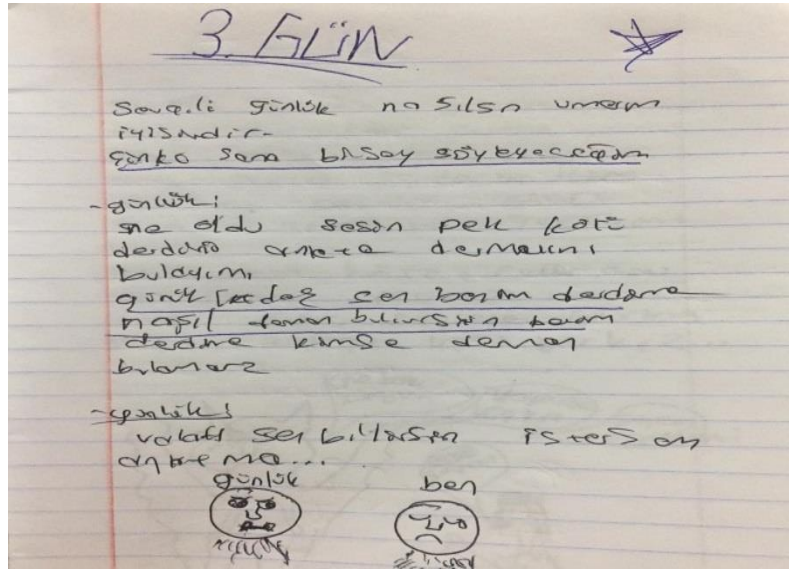 3. GÜN
Sevgili günlük nasılsn umarım
iyisindir.
günkü sana bişey söyleyeceğim
-günlük:
ne oldu sesin pek kötü
derdini anlat dermanını
bulayım,
günlük sen benim derdime
nasıl derman bulursun benim
derdime kimse derman
bulamaz
-günlük:
sen bilirsin istersen
anlatma...
günlük ben